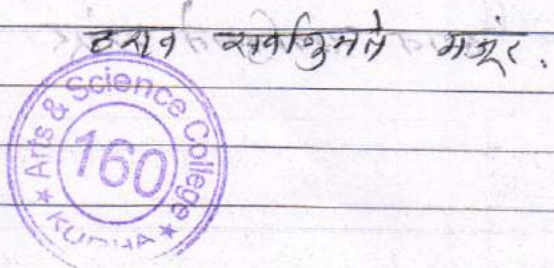 ठराव सर्वानुमते मंजूर.
Arts & Science College
160
★ KURHA ★